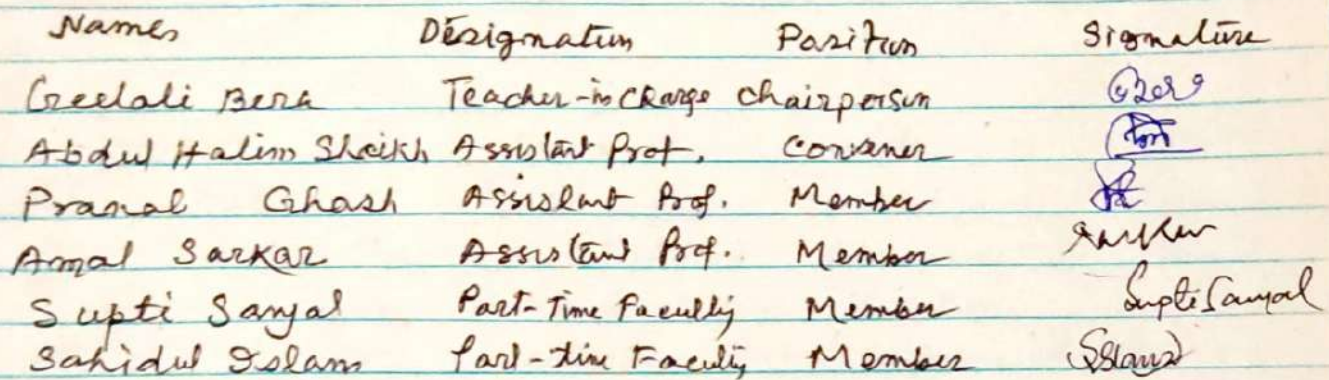 Names Designation Position Signature
Geetali Bera Teacher-in Charge Chairperson GBera
Abdul Halim Sheikh Assistant Prof. Convener
Pranab Ghosh Assistant Prof. Member
Amal Sarkar Assistant Prof. Member Sarkar
Supti Sanyal Part-Time Faculty Member Supti Sanyal
Sahidul Islam Part-time Faculty Member SIslam